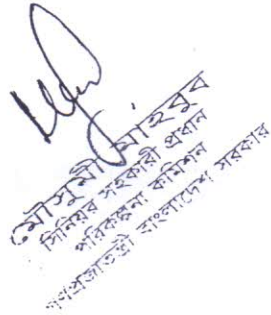 মৌসুমী মাহবুব
সিনিয়র সহকারী প্রধান
পরিকল্পনা কমিশন
গণপ্রজাতন্ত্রী বাংলাদেশ সরকার